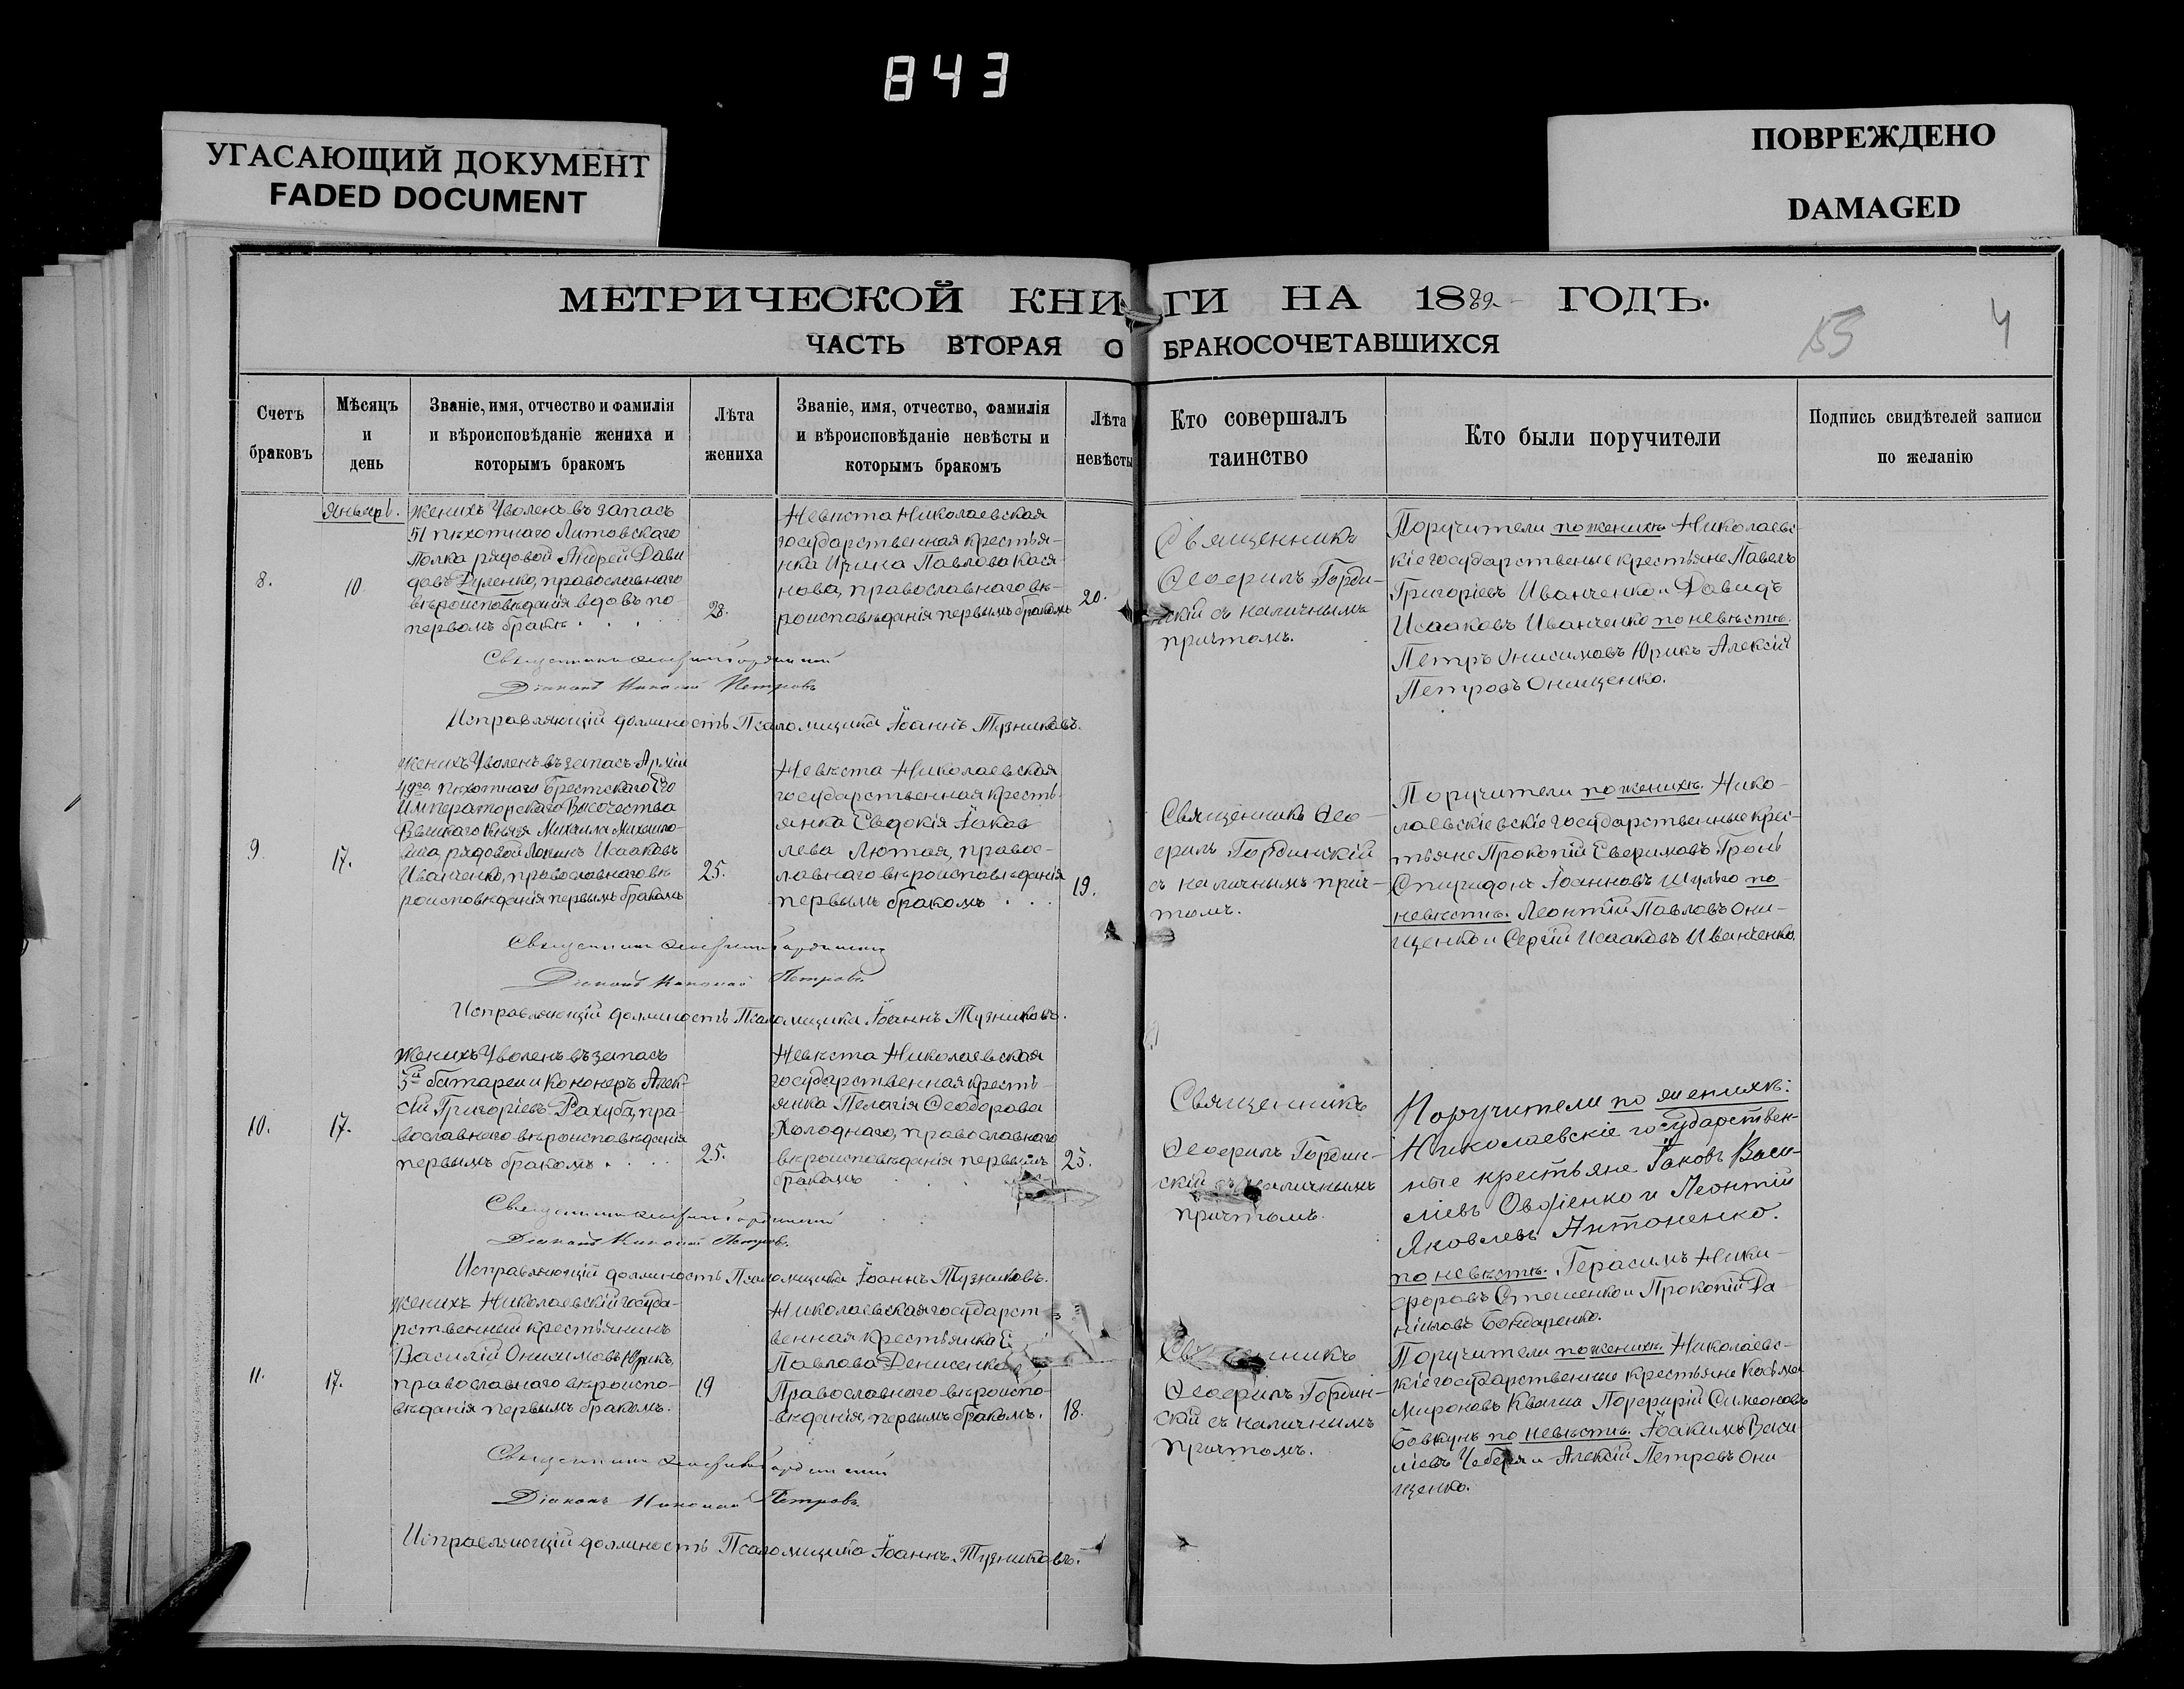 843
УГАСАЮЩИЙ ДОКУМЕНТ
FADED DOCUMENT
ПОВРЕЖДЕНО
DAMAGED
МЕТРИЧЕСКОЙ КНИГИ НА 1889 ГОДЪ.
ЧАСТЬ ВТОРАЯ О БРАКОСОЧЕТАВШИХСЯ
4
Счетъ
браковъ
Мѣсяцъ
и
день
Званіе, имя, отчество и фамилія
и вѣроисповѣданіе жениха и
которымъ бракомъ
Лѣта
жениха
Званіе, имя, отчество, фамилія
и вѣроисповѣданіе невѣсты и
которымъ бракомъ
Лѣта
невѣсты
Кто совершалъ
таинство
Кто были поручители
Подпись свидѣтелей записи
по желанію
8.
Январь.
10.
Женихъ Уволенъ въ запасъ
51 пѣхотнаго Литовскаго
Полка рядовой Андрей Дави
довъ Дуленко, православнаго
вѣроисповѣданія вдовъ по
первомъ бракѣ
28.
Невѣста Николаевская
государственная крестья-
нка Ирина Павлова Кася
нова, православнаго вѣ-
роисповѣданія первымъ бракомъ
20.
Священникъ
Ѳеофилъ Горди-
нскій съ наличнымъ
причтомъ.
Поручители по женихѣ Николаевс-
кіе государственые крестьяне Павелъ
Григоріевъ Иванченко и Давидъ
Исааковъ Иванченко по невѣстѣ.
Петръ Онисимовъ Юрикъ Алексій
Петровъ Онищенко.
Священникъ Ѳеофилъ Гординскій
Діаконъ Николай Петровъ
Исправляющій должность Псаломщика Іоаннъ Тузниковъ.
9.
17.
Женихъ Уволенъ въ запасъ Арміи
49го. пѣхотнаго Брестскаго Его
Императорскаго Высочества
Великаго Князя Михаила Михайло-
вича рядовой Исааковъ
Иванченко, православнаго вѣ
роисповѣданія первымъ бракомъ
25.
Невѣста Николаевская
государственная кресть-
янка Евдокія Іаков
лева Лютая, правос-
лавнаго вѣроисповѣданія
первымъ бракомъ
19.
Священникъ Ѳео-
филъ Гординскій
съ наличнымъ прич-
томъ.
Поручители по женихѣ. Нико-
лаевскіевскіе государственные крес-
тьяне Прокопій Евфимовъ
Спиридонъ Іоанновъ Шульго по
невѣстѣ. Леонтій Павловъ Они-
щенко и Сергій Исааковъ Иванченко.
Священникъ Ѳеофилъ Гординскій
Діаконъ Николай Петровъ
Исправляющій должность Псаломщика Іоаннъ Тузниковъ.
10.
17.
Женихъ Уволенъ въ запасъ
5й батареи Кононеръ Алек-
сій Григоріевъ Рахуба, пра-
вославнаго вѣроисповѣданія
первымъ бракомъ
25.
Невѣста Николаевская
государственная кресть-
янка Пелагія Ѳеодорова
Холоднаго, православнаго
вѣроисповѣданія первымъ
бракомъ
25.
Священникъ
Ѳеофилъ Гордин-
скій съ наличнымъ
причтомъ.
Поручители по женихѣ:
Николаевскіе государствен-
ные крестьяне Іаковъ Васи-
ліевъ Овдіенко и Леонтій
Яковлевъ Антоненко.
по невѣстѣ. Герасимъ Ники-
форовъ Стешенко и Прокопій Да-
ніиловъ Бондаренко.
Священникъ Ѳеофилъ Гординскій
Діаконъ Николай Петровъ.
Исправляющій должность Псаломщика Іоаннъ Тузниковъ.
11.
17.
Женихъ Николаевскій госуда-
рственный крестьянинъ
Василій Онисимовъ Юрикъ,
православнаго вѣроиспо-
вѣданія первымъ бракомъ.
19
Николаевская государст
венная крестьянка
Павлова Денисенкова
Православнаго вѣроиспо-
вѣданія, первымъ бракомъ.
18.
Священникъ
Ѳеофилъ Гордин-
скій съ наличнымъ
причтомъ.
Поручители по женихѣ. Николаевс-
кіе государственные крестьяне Козьма
Мироновъ Кваша Порфирій Симеоновъ
Бовкунъ по невѣстѣ. Іоакимъ Васи
ліевъ и Алексій Петровъ Они
щенко.
Священникъ Ѳеофилъ Гординскій
Діаконъ Николай Петровъ.
Исправляющій должность Псаломщика Іоаннъ Тузниковъ.